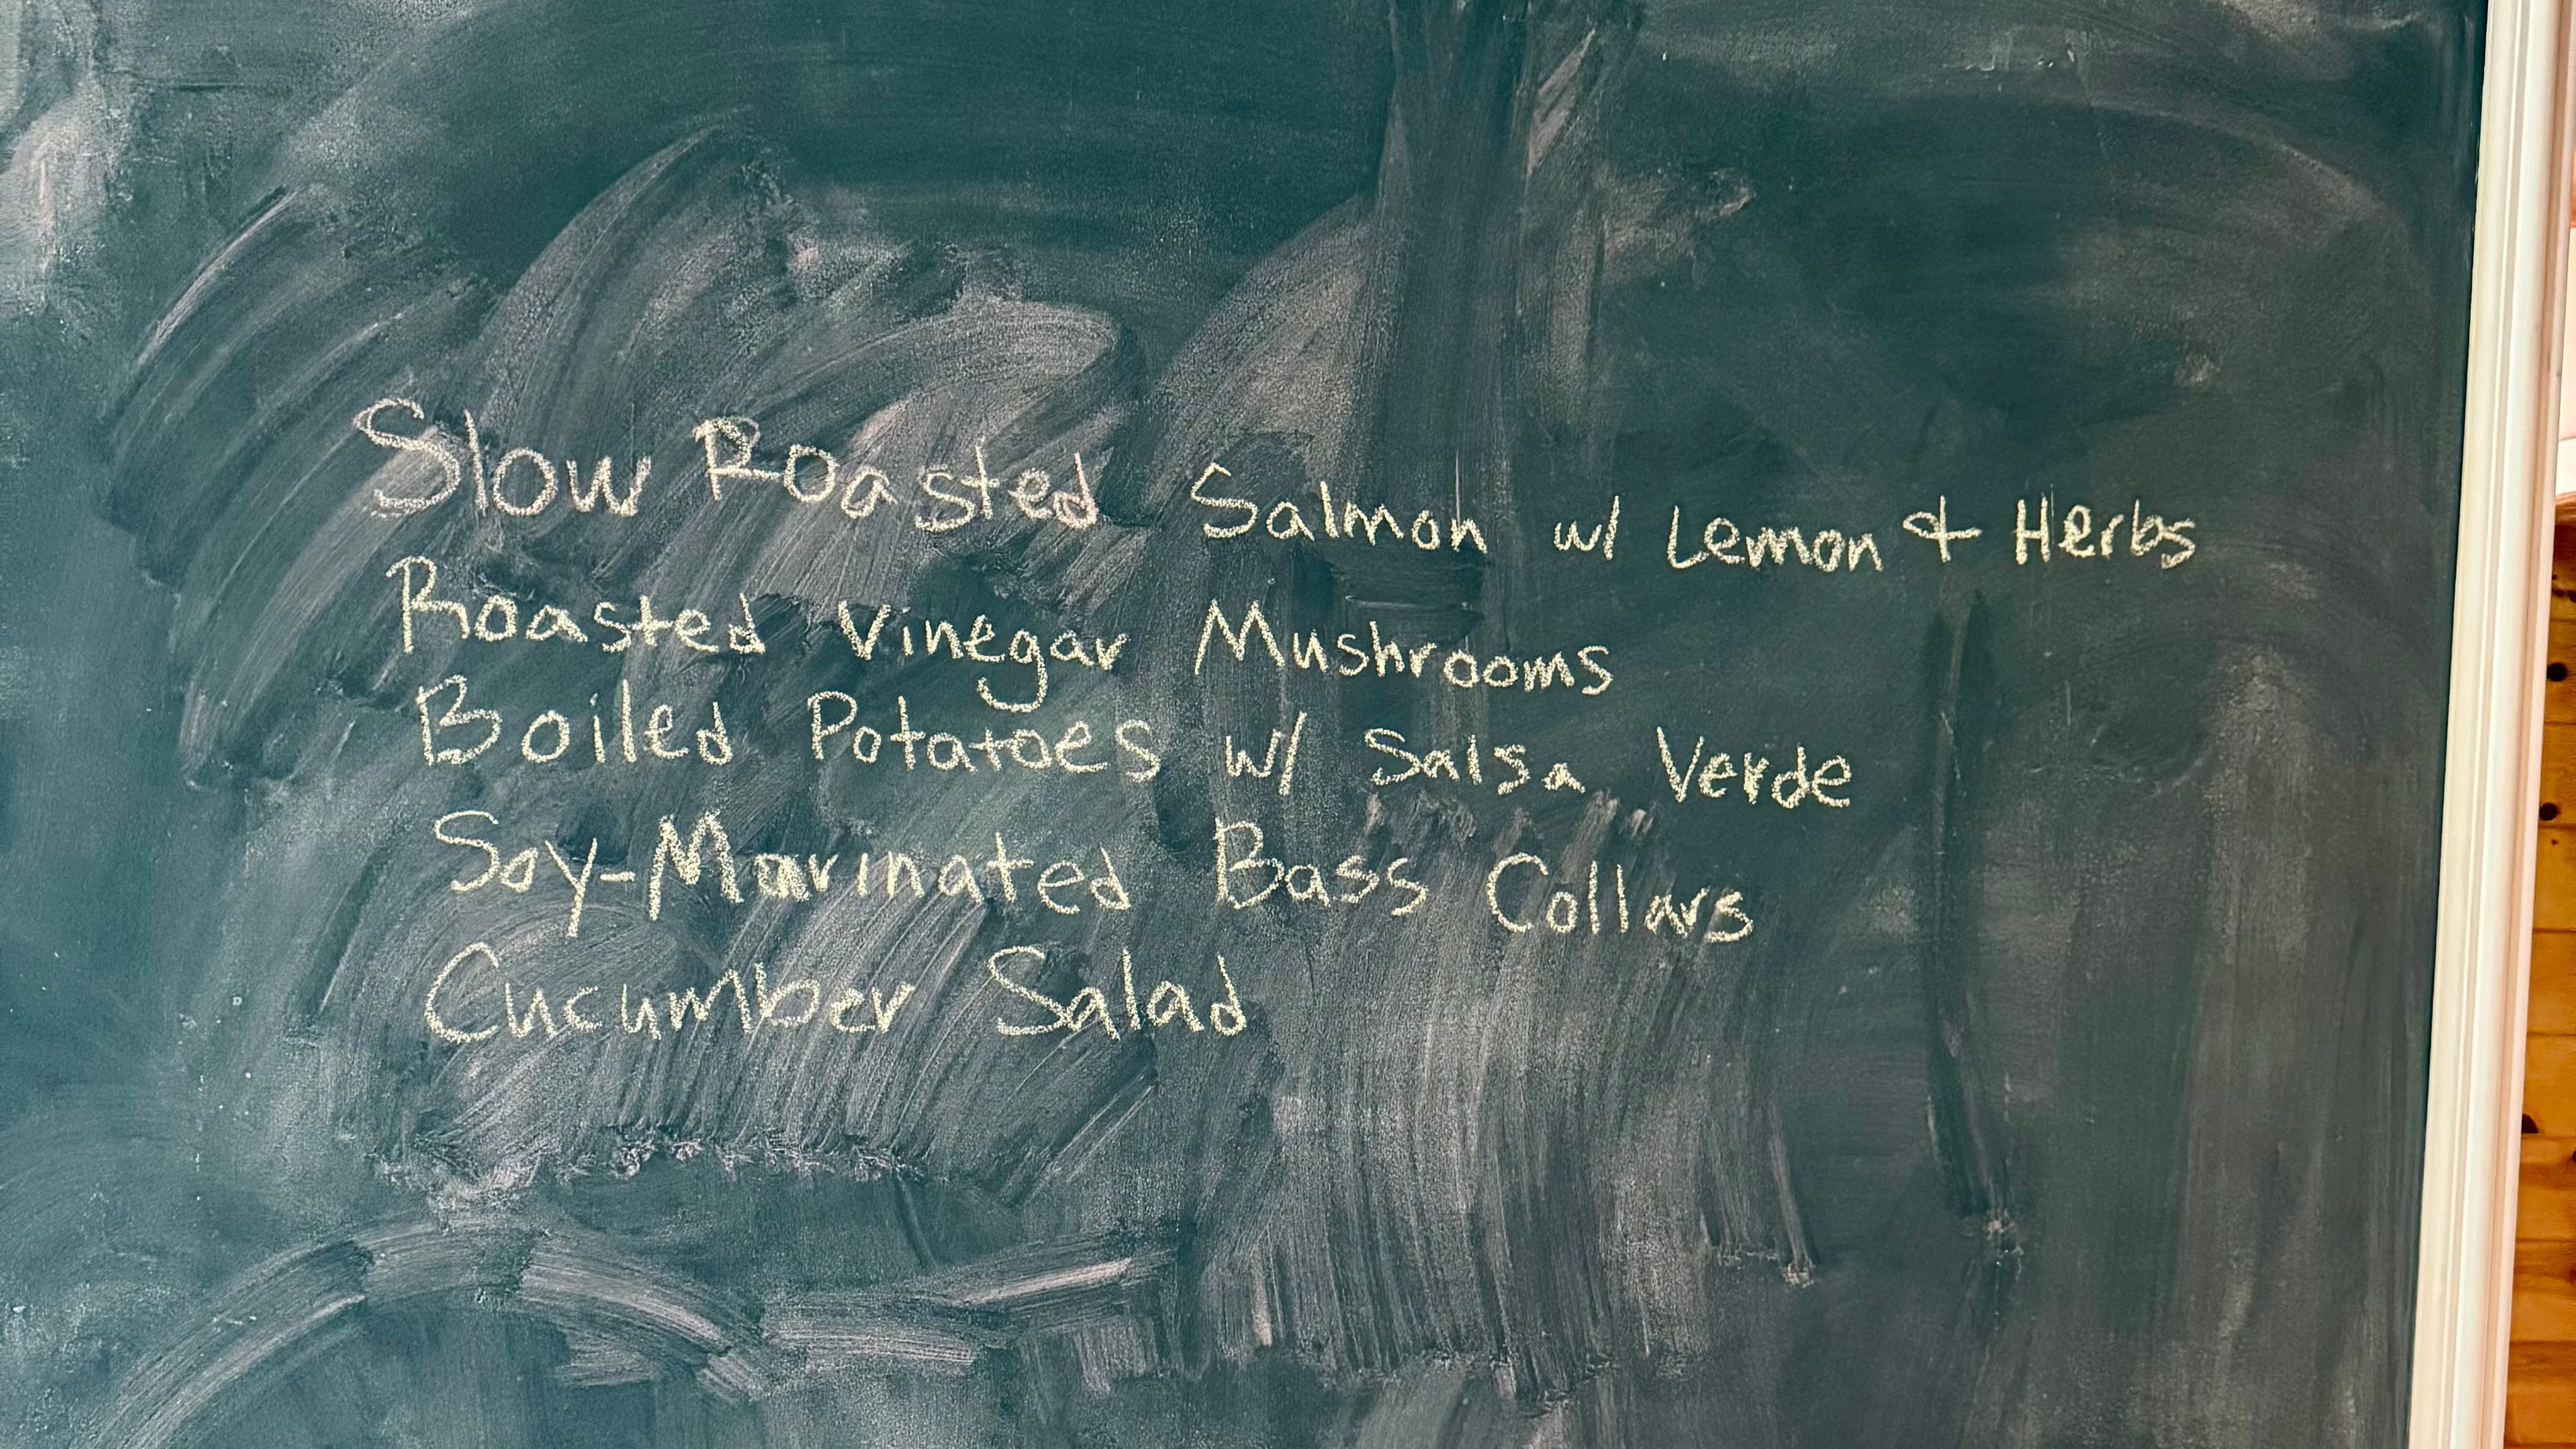 Slow Roasted Salmon w/ Lemon & Herbs
Roasted Vinegar Mushrooms
Boiled Potatoes w/ Salsa Verde
Soy-Marinated Bass Collars
Cucumber Salad